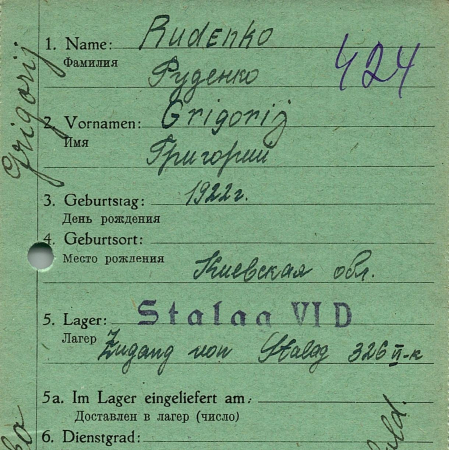 1. Name: Rudenko
Фамилия
Руденко
424
2. Vornamen: Grigorij
Имя
Григорий
3. Geburtstag: 1922г.
День рождения
4. Geburtsort:
Место рождения
Киевская обл.
5. Lager: Stalag VI D
Лагер
Zugang von Stalag 326 II-к
5a. Im Lager eingeliefert am:
Доставлен в лагер (число)
6. Dienstgrad:
Grigorij